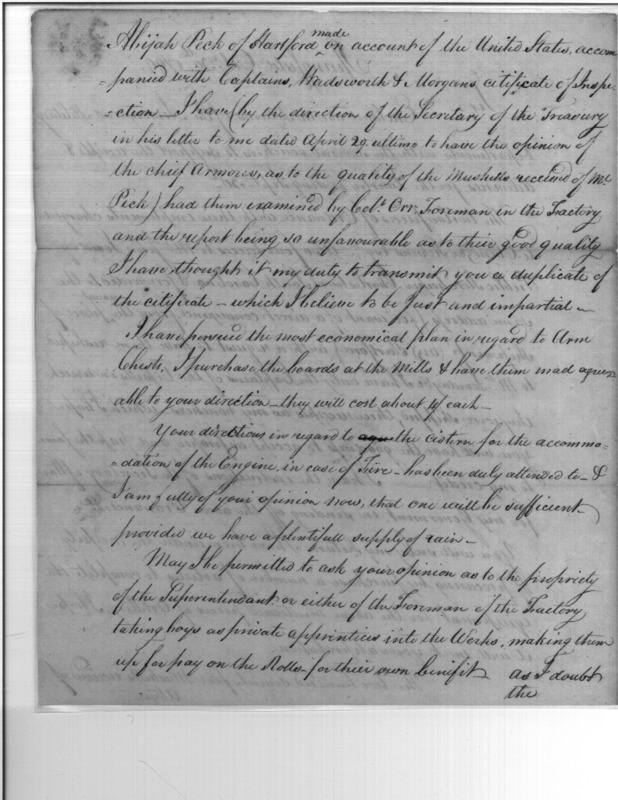 made
Abijah Peck of Hartford on account of the United States, accom
-panied with Captains, Wadsworth & Morgans citificate of Inspe-
-ction – I have (by the direction of the Secretary of the Treasury
in his letter to me dated April 29 ultimo to have the opinion of
the chief Armorer, as, to the quality of the Muskets received of Mr
Peck) had them examined by Orr Foreman in the Factory
and the report being so unfavourable as to their good quality
I have thought it my duty to transmit you a duplicate of
the citificate – which I believe to be Just and impartial –
I have persued the most economical plan in regard to Arm
Chests, I purchase the boards at the Mills & have them mad agree
able to your direction – they will cost about each –
Your directions in regard to the cistern for the accommo-
-dation of the Engine, in case of Fire – has been duly attended to – &
I am fully of your opinion now, that one will be sufficient
provided we have a plentifull supply of rain –
May I be permitted to ask your opinion as to the propriety
of the Superentendant or either of the Foreman of the Factory
taking boys as private apprentices into the Works, making them
up for pay on the Rolls – for their own benefit as I doubt
the